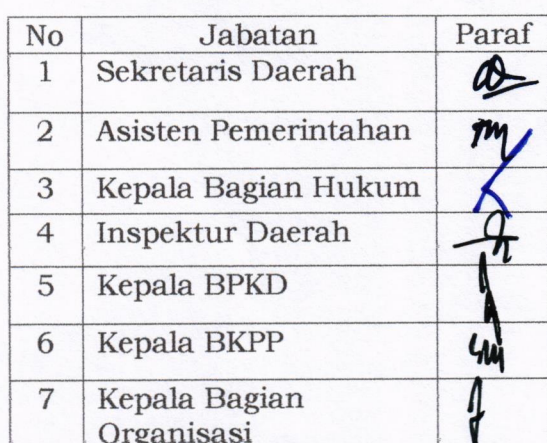 No Jabatan Paraf
1 Sekretaris Daerah
2 Asisten Pemerintahan
3 Kepala Bagian Hukum
4 Inspektur Daerah
5 Kepala BPKD
6 Kepala BKPP
7 Kepala Bagian
Organisasi